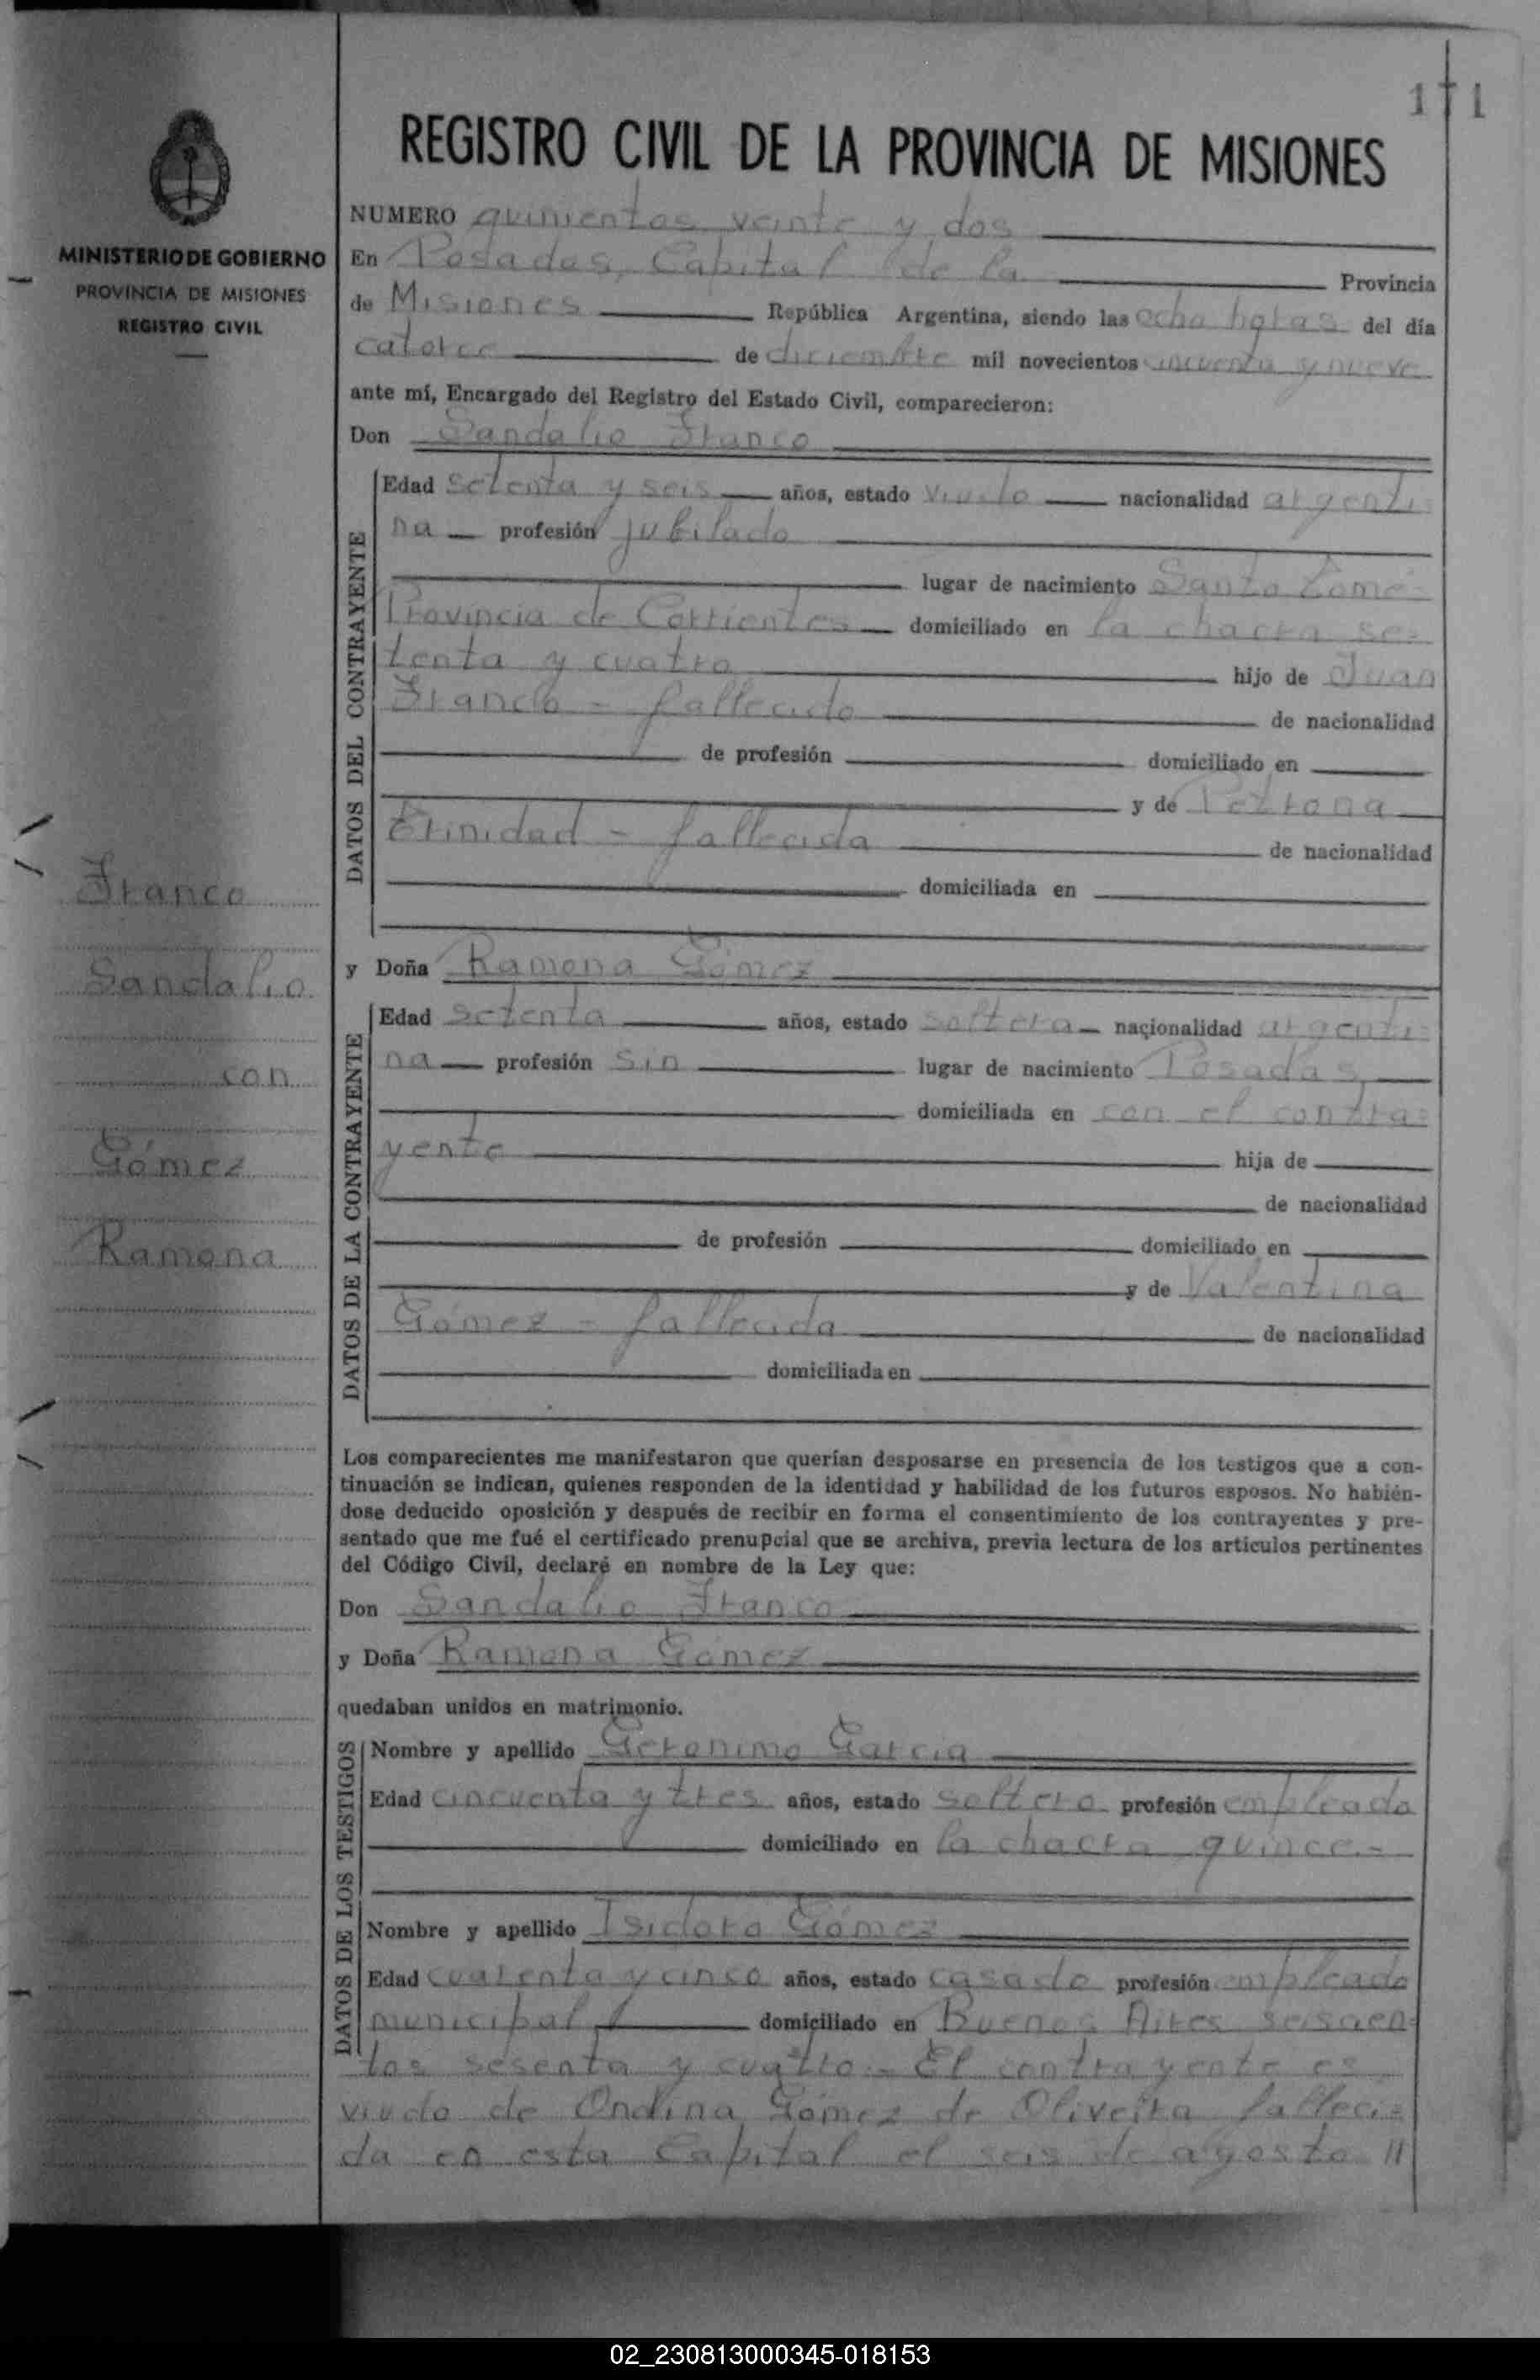 171
REGISTRO CIVIL DE LA PROVINCIA DE MISIONES
MINISTERIO DE GOBIERNO
PROVINCIA DE MISIONES
REGISTRO CIVIL
Franco
Sandalio
con
Gómez
Ramona
NUMERO quinientos veinte y dos
En Posadas, Capital de la Provincia
de Misiones República Argentina, siendo las ocho horas del día
catorce de diciembre mil novecientos cincuenta y nueve
ante mí, Encargado del Registro del Estado Civil, comparecieron:
Don Sandalio Franco
DATOS DEL CONTRAYENTE
Edad setenta y seis años, estado viudo nacionalidad argenti-
na profesión jubilado
lugar de nacimiento Santo Tomé-
Provincia de Corrientes domiciliado en la chacra se-
tenta y cuatro hijo de Juan
Franco - fallecido de nacionalidad
de profesión domiciliado en
y de Petrona
Trinidad - fallecida de nacionalidad
domiciliada en
y Doña Ramona Gómez
DATOS DE LA CONTRAYENTE
Edad setenta años, estado soltera nacionalidad argenti-
na profesión sin lugar de nacimiento Posadas
domiciliada en con el contra-
yente hija de
de nacionalidad
de profesión domiciliado en
y de Valentina
Gómez - fallecida de nacionalidad
domiciliada en
Los comparecientes me manifestaron que querían desposarse en presencia de los testigos que a con-
tinuación se indican, quienes responden de la identidad y habilidad de los futuros esposos. No habién-
dose deducido oposición y después de recibir en forma el consentimiento de los contrayentes y pre-
sentado que me fué el certificado prenupcial que se archiva, previa lectura de los artículos pertinentes
del Código Civil, declaré en nombre de la Ley que:
Don Sandalio Franco
y Doña Ramona Gómez
quedaban unidos en matrimonio.
DATOS DE LOS TESTIGOS
Nombre y apellido Geronimo Garcia
Edad cincuenta y tres años, estado soltero profesión empleado
domiciliado en la chacra quince.-
Nombre y apellido Isidoro Gómez
Edad cuarenta y cinco años, estado casado profesión empleado
municipal domiciliado en Buenos Aires seiscien-
tos sesenta y cuatro.- El contrayente es
viudo de Ondina Gómez de Oliveira falleci-
da en esta Capital el seis de agosto //
02_230813000345-018153